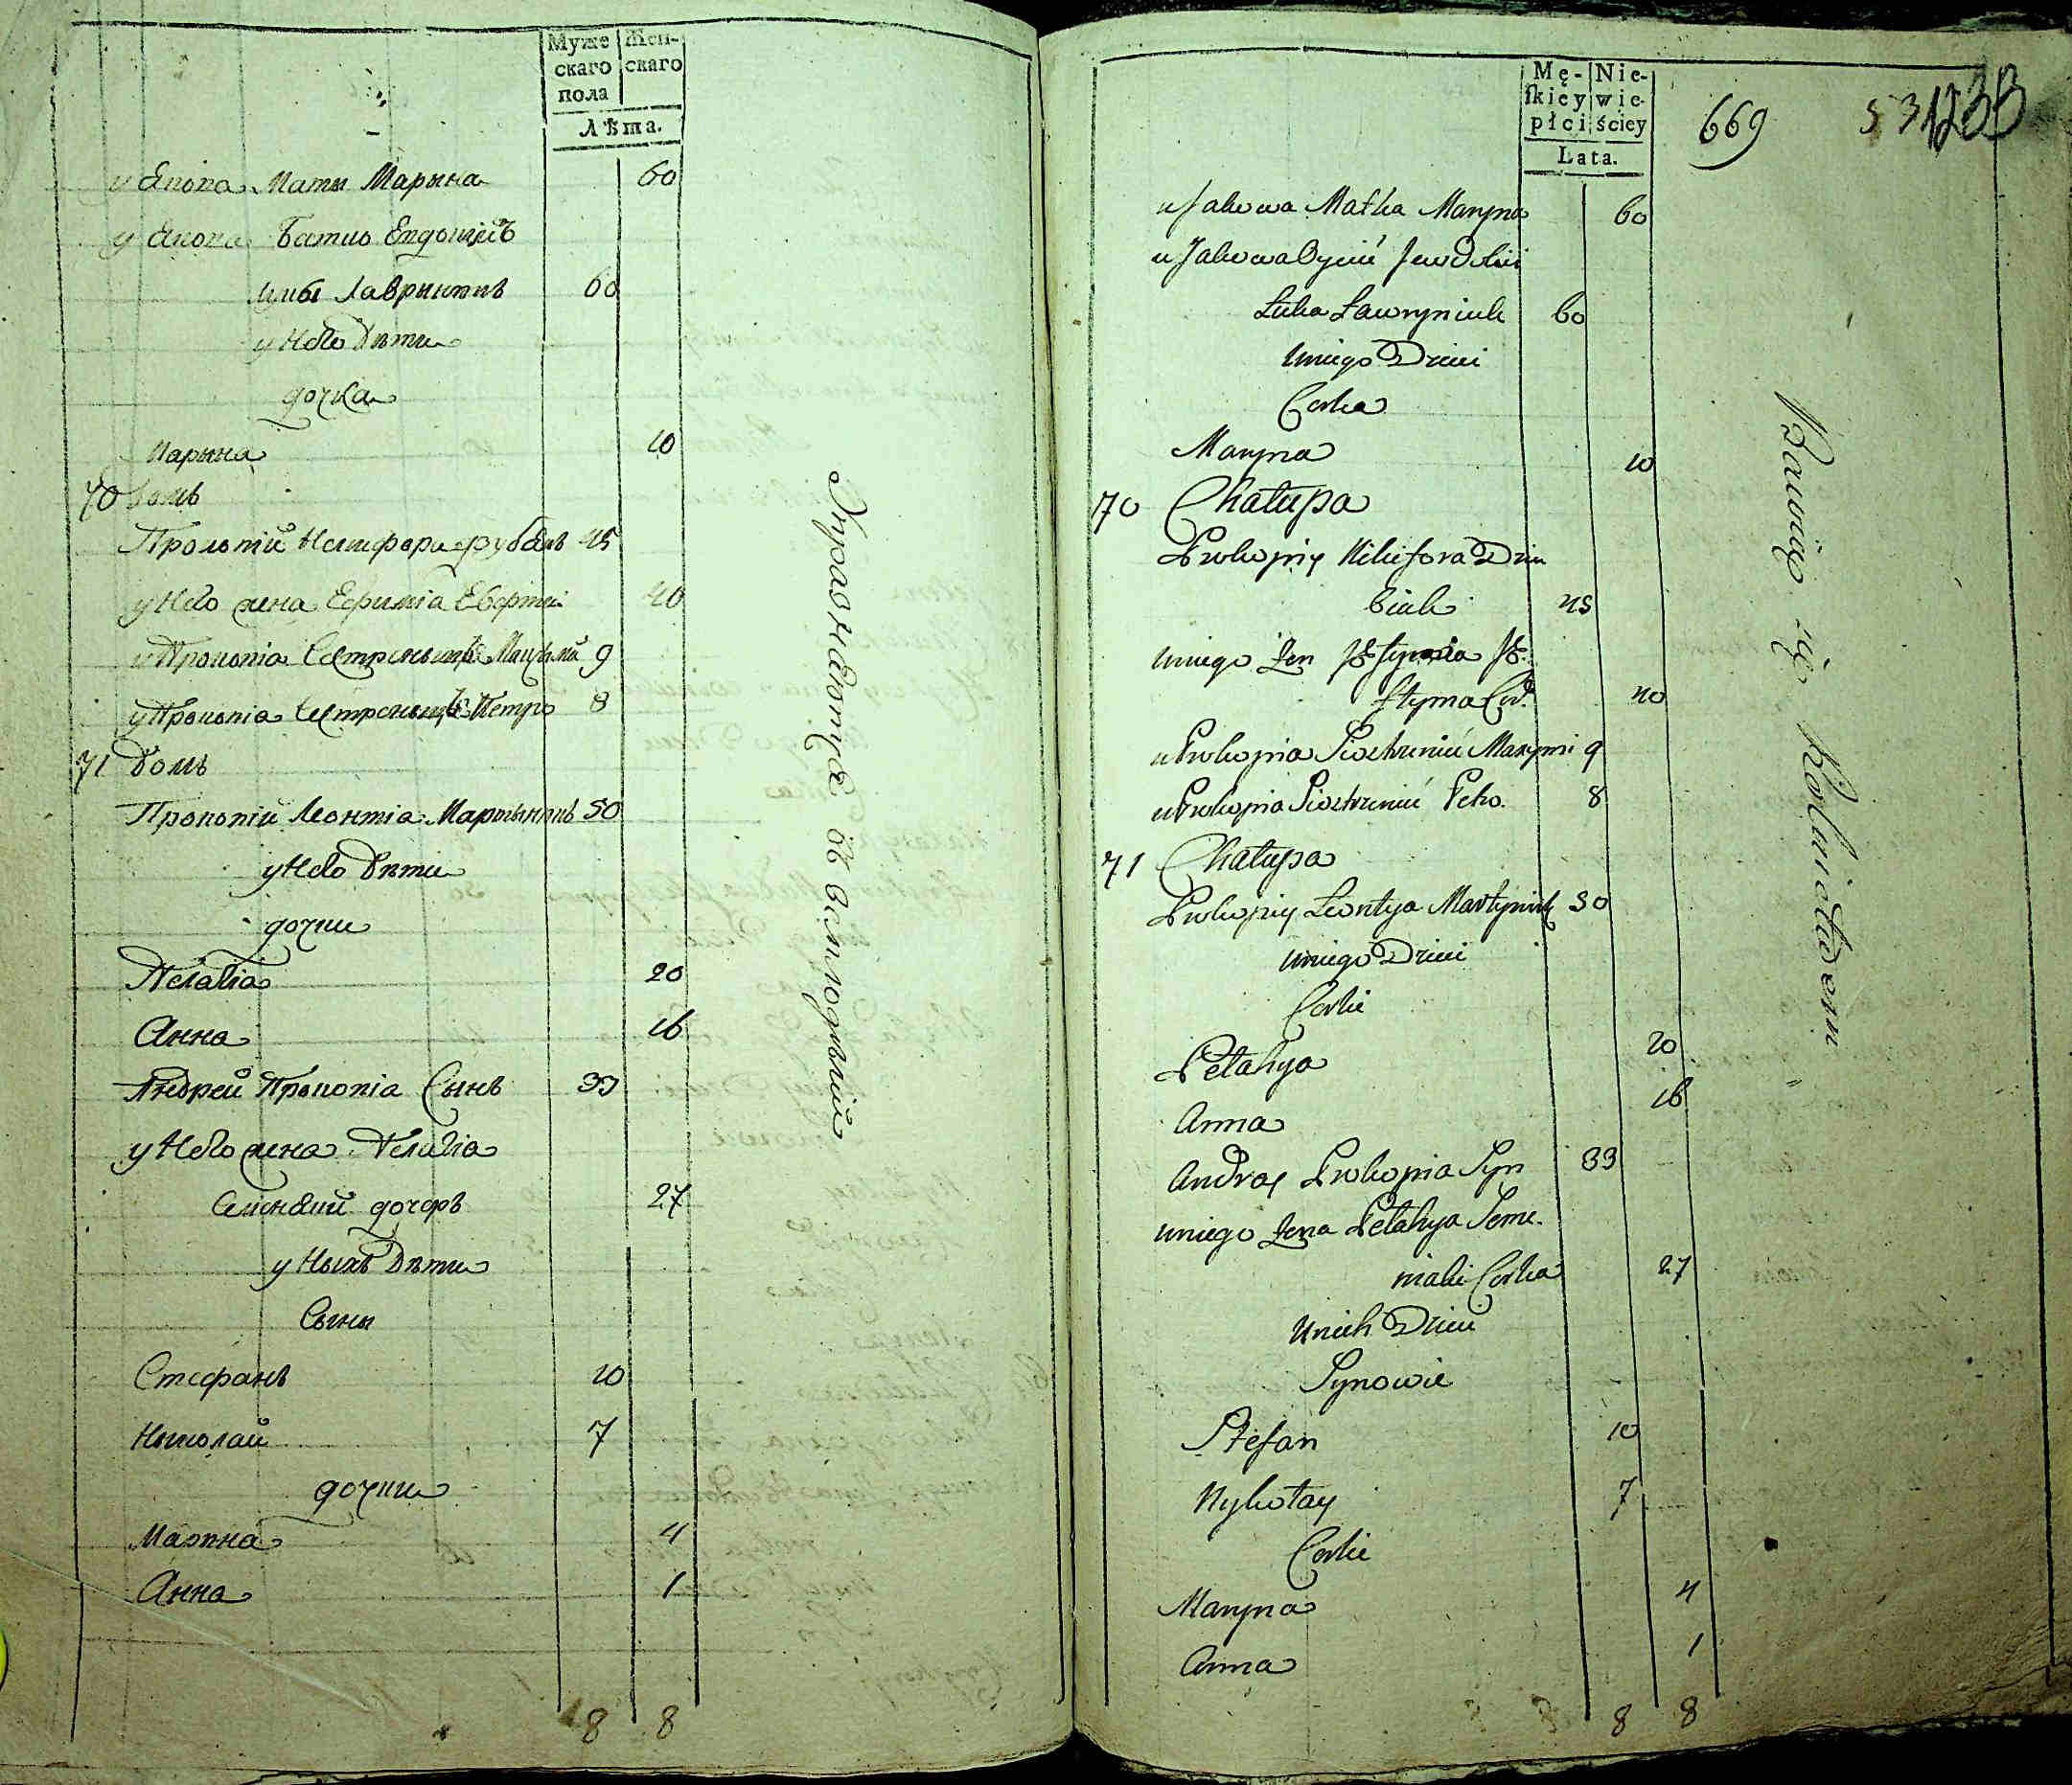 Муже
скаго
пола
Жен-
скаго
Лѣта.
у Якова Маты Марына 60
у Якова Батко Евдокіи
Лука Лаврынюкъ 60
у Него Дѣти
дочка
Марына 10
70 домъ
Прокопій Никифора 45
у Него жена Ефимія 40
у Прокопія Сестреныцъ 9
у Прокопія Сестреныцъ Петро 8
71 Домъ
Прокопій Леонтія Мартынюкъ 50
у Него Дѣти
дочки
Пелагія 20
Анна 16
Андрей Прокопія Сынъ 33
у Него жена Пелагія
дочеръ 27
у Ныхъ Дѣти
Сыны
Стефанъ 10
Ныколай 7
дочки
Марына 4
Анна 1
8 8
Упражняются въ земледѣліи
Mę-
skiey
płci
Nie-
wie-
ściey
Lata.
669
u Jakowa Matka Maryna 60
u Jakowa Oyciec Jewdokii
Łuka Ławryniuk 60
u niego Dzieci
Corka
Maryna 10
70 Chałupa
Prokopiy Nikifora Dziu
biak 45
u niego Żen
40
u Prokopia Siostrzeniec Maxym 9
u Prokopia Siostrzeniec Petro. 8
71 Chałupa
Prokopiy Leontya Martyniuk 50
u niego Dzieci
Corki
Pelahya 20
Anna 16
Andrey Prokopia Syn 33
u niego Żona Pelahya Seme-
niaki Corka 27
u nich Dzieci
Synowie
Stefan 10
Nykołay 7
Corki
Maryna 4
Anna 1
8 8
Bawią się Rolnictwem